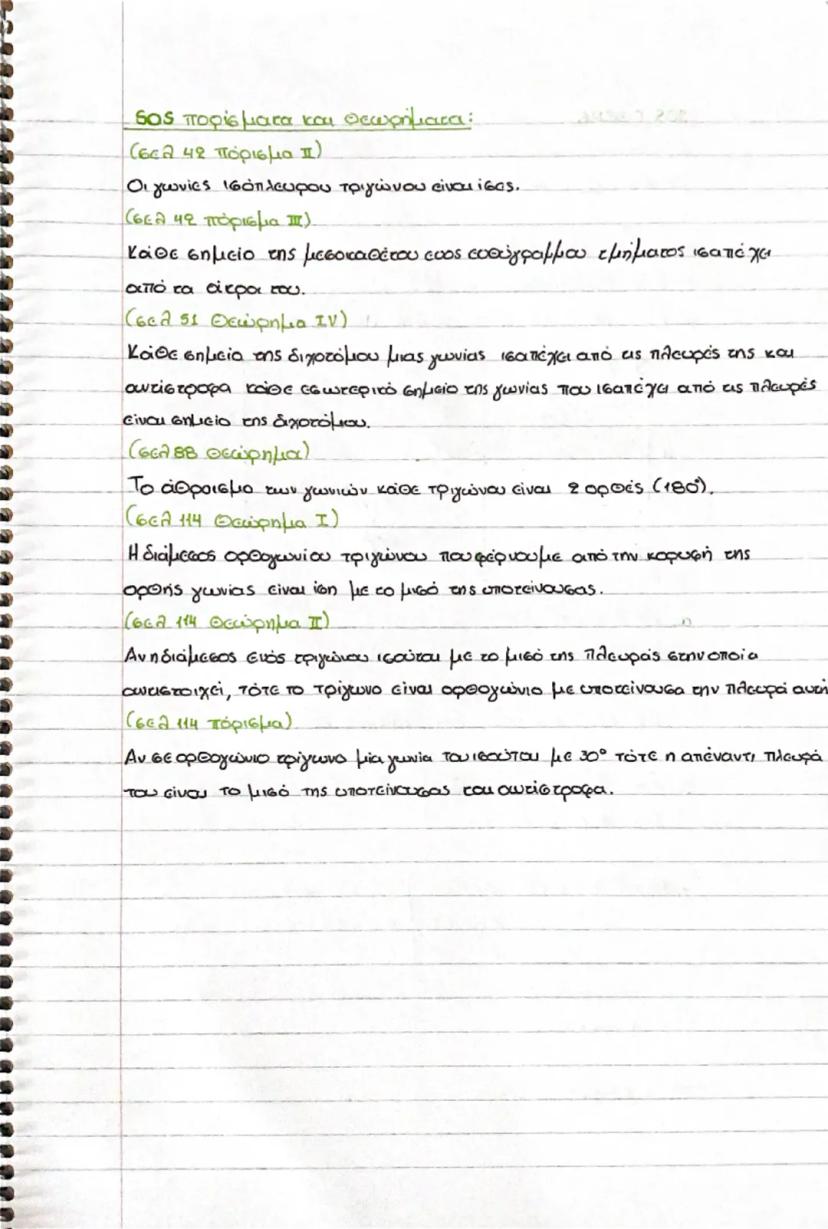 SOS πορίσματα και Θεωρήματα:
(σελ 42 πόρισμα ΙΙ)
Οι γωνίες ισόπλευρου τριγώνου είναι ίσες.
(σελ 42 πόρισμα ΙΙΙ)
Κάθε σημείο της μεσοκαθέτου ενος ευθύγραμμου τμήματος ισαπέχει
από τα άκρα του.
(σελ 51 Θεώρημα IV)
Κάθε σημείο της διχοτόμου μιας γωνίας ισαπέχει από τις πλευρές της και
αντίστροφα κάθε εσωτερικό σημείο της γωνίας που ισαπέχει από τις πλευρές
είναι σημείο της διχοτόμου.
(σελ 88 Θεώρημα)
Το άθροισμα των γωνιών κάθε τριγώνου είναι 2 ορθές (180°).
(σελ 114 Θεώρημα Ι)
Η διάμεσος ορθογωνίου τριγώνου που φέρνουμε από την κορυφή της
ορθής γωνίας είναι ίση με το μισό της υποτείνουσας.
(σελ 114 Θεώρημα ΙΙ)
Αν η διάμεσος ενός τριγώνου ισούται με το μισό της πλευράς στην οποία
αντιστοιχεί, τότε το τρίγωνο είναι ορθογώνιο με υποτείνουσα την πλευρά αυτή
(σελ 114 πόρισμα)
Αν σε ορθογώνιο τρίγωνο μία γωνία του ισούται με 30° τότε η απέναντι πλευρά
του είναι το μισό της υποτείνουσας και αντίστροφα.